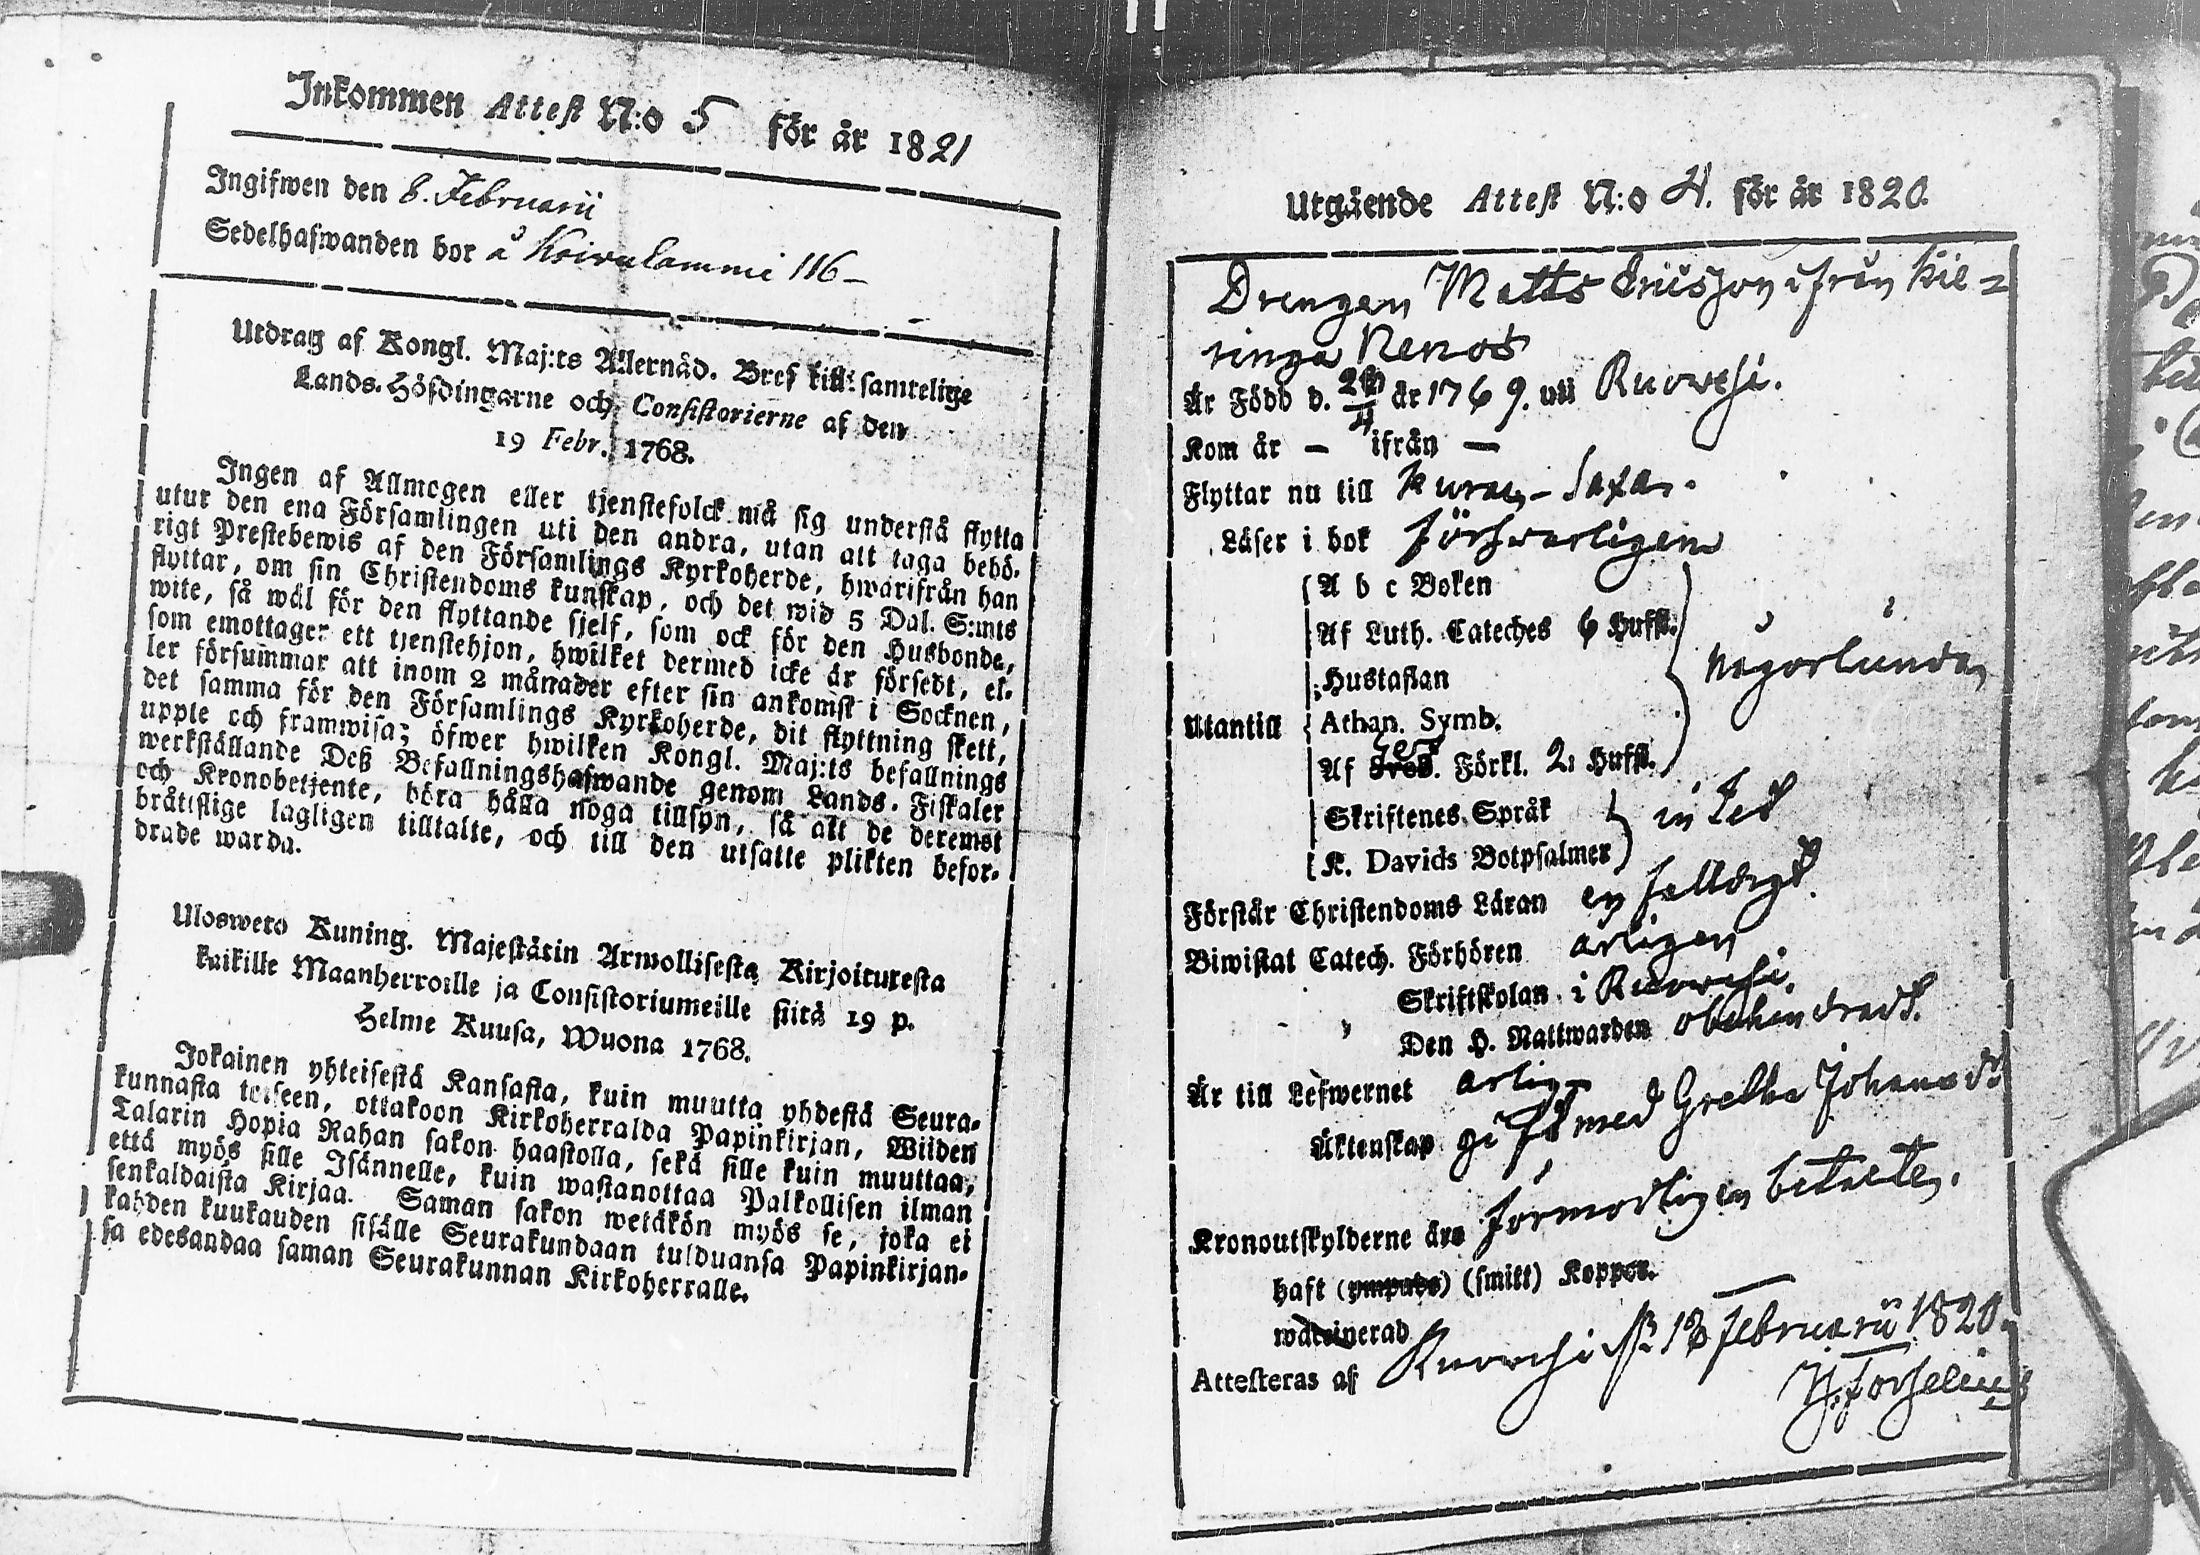 Inkommen Attest N:o 5 för år 1821
Ingifwen den 8. Februarii
Sedelhafwanden bor å Koivulammi 116 –
Utdrag af Kongl. Maj:ts Allernåd. Bref till samtelige
Lands-Höfdingarne och Consistorierne af den
19 Febr. 1768.
Ingen af Allmogen eller tjenstefolck må sig understå flytta
utur den ena Församlingen uti den andra, utan att taga behö-
rigt Prestebewis af den Församlings Kyrkoherde, hwarifrån han
flyttar, om sin Christendoms kunskap, och det wid 5 Dal. S:mts
wite, så wäl för den flyttande sjelf, som ock för den Husbonde,
som emottager ett tjenstehjon, hwilket dermed icke är försedt, el-
ler försummar att inom 2 månader efter sin ankomst i Socknen,
det samma för den Församlings Kyrkoherde, dit flyttning skett,
upple och framwisa; öfwer hwilken Kongl. Maj:ts befallnings
werkställande Deß Befallningshafwande genom Lands-Fiskaler
och Kronobetjente, böra hålla noga tillsyn, så att de deremot
bråttslige lagligen tilltalte, och till den utsatte plikten befor-
drade warda.
Uloswero Kuning. Majestätin Armollisesta Kirjoituxesta
kaikille Maanherroille ja Consistoriumeille siitä 19 p.
Helme Kuusa, Wuona 1768.
Jokainen yhteisestä Kansasta, kuin muutta yhdestä Seura-
kunnasta toiseen, ottakoon Kirkoherralda Papinkirjan, Wiiden
Talarin Hopia Rahan sakon haastolla, sekä sille kuin muuttaa,
että myös sille Isännelle, kuin wastanottaa Palkollisen ilman
senkaldaista Kirjaa. Saman sakon wetäkön myös se, joka ei
kahden kuukauden sisälle Seurakundaan tulduansa Papinkirjan-
sa edesandaa saman Seurakunnan Kirkoherralle.
Utgående Attest N:o 4. för år 1820.
Drengen Matts Ericsson ifrån Kie-
ringa Nenos
Är Född d. år 1769. uti Ruovesi.
Kom år – ifrån –
Flyttar nu till
Läser i bok försvarligen
A b c Boken
Af Luth. Cateches 6 Hufst.
Hustaflan
någorlunda
Utantill
Athan. Symb.
Af Förkl. 2: Hufst.
Skriftenes Språk
intet
K. Davids Botpsalmer
Förstår Christendoms Läran
Biwistat Catech. Förhören årligen
Skriftskolan i Ruovesi.
Den H. Nattwarden obehindradt.
Är till Lefwernet ärlig
Äktenskap gift med Gretha Johansdr
Kronoutskylderne äro förmodligen betalte.
haft (ympade) (smitt) Koppor. –
waccinerad
Attesteras af Ruovesi d. 18 Februarii 1820.
H. Forselius